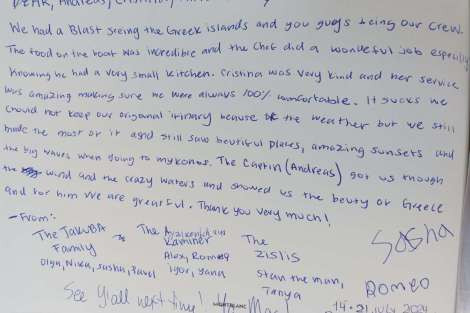 DEAR, Andreas,
We had a Blast seeing the Greek islands and you guys being our crew.
The food on the boat was incredible and the Chef did a wonderful job especially
knowing he had a very small kitchen. Cristina was very kind and her service
was amazing making sure we were always 100% comfortable. It sucks we
chould not keep our origonal itinary because of the weather but we still
made the most of it and still saw beutiful places, amazing sunsets and
the big waves when going to mykonos. The Captin (Andreas) got us though
the wind and the crazy waters and showed us the beuty of Greece
and for him we are greatful. Thank you very much!
- From:
The Jakuba Family
Olya, Nika, Sasha, Pavel
The
Kaminer
Alex, Romeo
Igor, Yana
The
Zislis
Stan the man,
Tanya
Sasha
Romeo
See Y'all next time!
14-21 July 2024